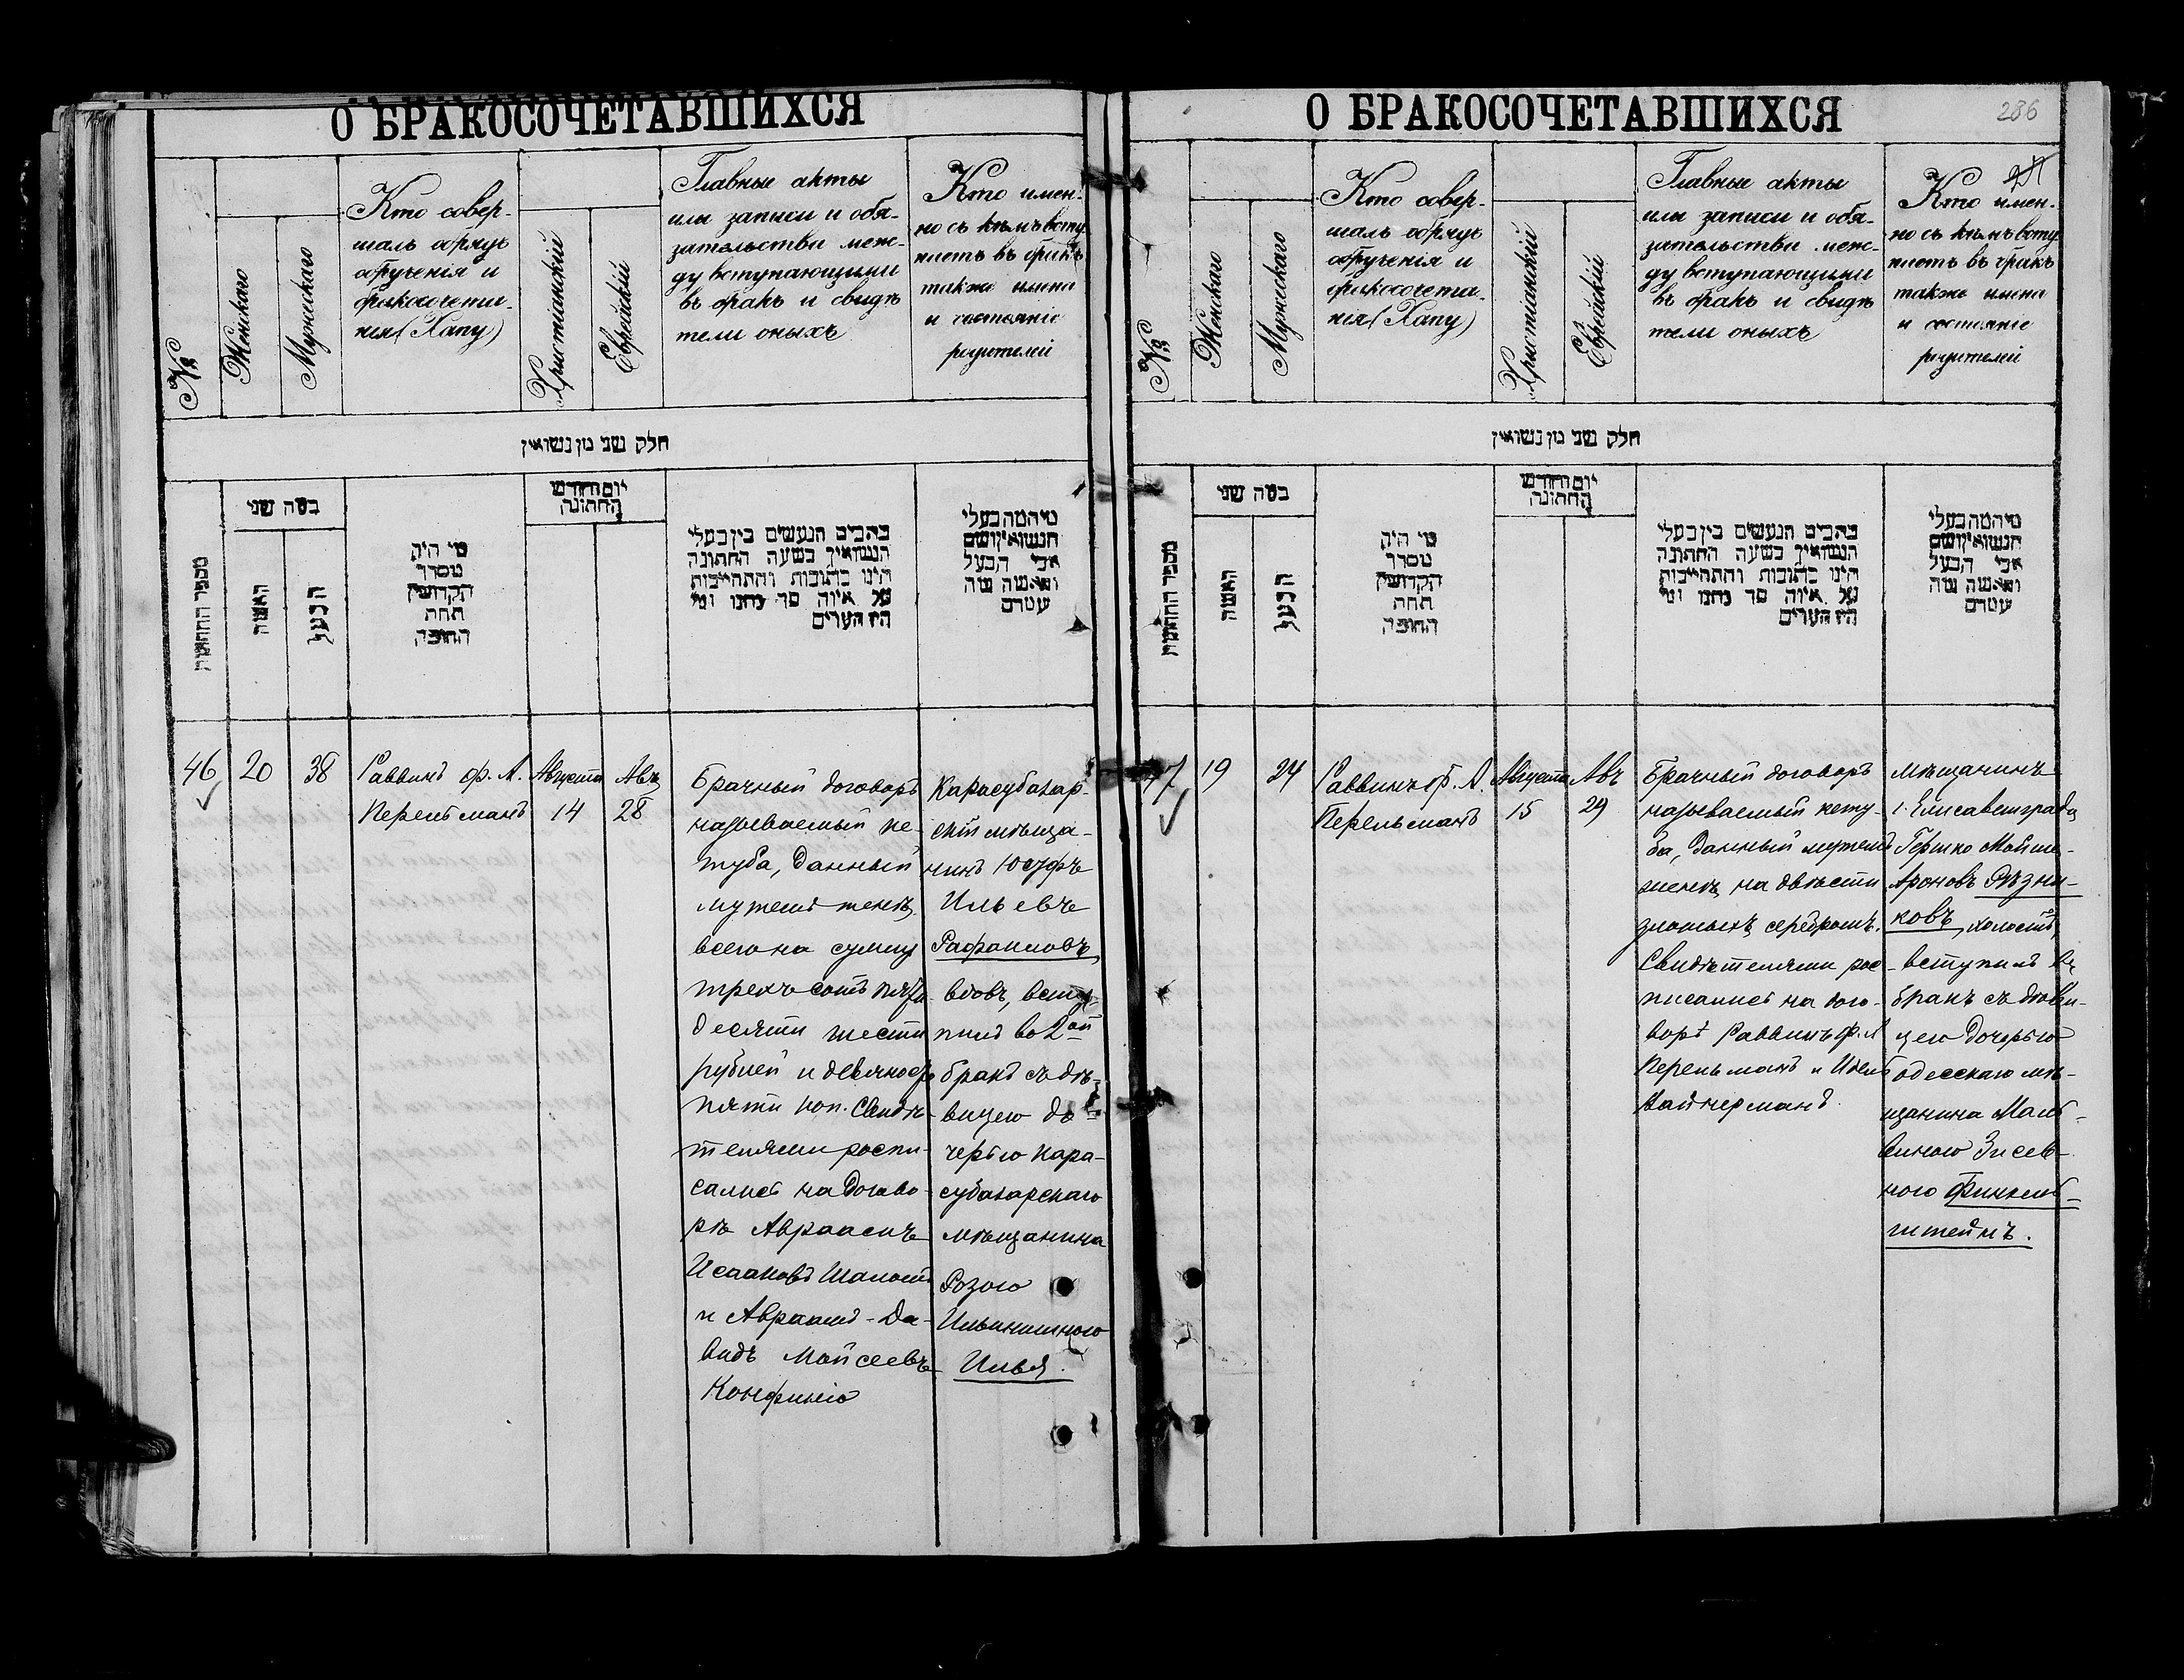 О БРАКОСОЧЕТАВШИХСЯ
№
Женскаго
Мужескаго
Кто совер-
шалъ обрядъ
обрученія и
бракосочета-
нія (Хапу)
Христіанскій
Еврейскій
Главные акты
или записи и обя-
зательства меж-
ду вступающими
въ бракъ и свидѣ
тели оныхъ
Кто имен-
но съ кѣмъ всту
паетъ въ бракъ
также имена
и состояніе
родителей
חלק שני מן נשואין
מספר החתונות
כמה שני
האשה
הבעל
מי היה
מסדר
הקדושין
תחת
החופה
יום וחודש
החתונה
כתבים הנעשים בין בעלי
הנשואין בשעה החתונה
היינו כתובות והתחייבות
על איזה סך נתנו ומי
היו העדים
מי המה בעלי
הנשואין ושם
אבי הבעל
והאשה ומה
עמדם
46
20
38
Раввинъ Ф. А.
Перельманъ
Августа
14
Авъ
28
Брачный договоръ
называемый ке-
туба, данный
мужемъ женѣ,
всего на сумму
трехъ сотъ пяти
десяти шести
рублей и девяносто
пяти коп. Свидѣ-
телями роспи-
сались на догово-
рѣ Авраамъ
Исааковъ Шаломъ
и Авраамъ-Да-
видъ Мойсеевъ
Конфино
Карасубазар-
скій мѣща-
нинъ Юсуфъ
Ильевъ
Рафаиловъ,
вдовъ, всту-
пилъ во 2ой
бракъ съ дѣ-
вицею до-
черью кара-
субазарскаго
мѣщанина
Розою
Ильинишною
Илья.
О БРАКОСОЧЕТАВШИХСЯ
286
№
Женскаго
Мужескаго
Кто совер-
шалъ обрядъ
обрученія и
бракосочета-
нія (Хапу)
Христіанскій
Еврейскій
Главные акты
или записи и обя-
зательства меж-
ду вступающими
въ бракъ и свидѣ
тели оныхъ
Кто имен-
но съ кѣмъ всту
паетъ въ бракъ
также имена
и состояніе
родителей
חלק שני מן נשואין
מספר החתונות
כמה שני
האשה
הבעל
מי היה
מסדר
הקדושין
תחת
החופה
יום וחודש
החתונה
כתבים הנעשים בין בעלי
הנשואין בשעה החתונה
היינו כתובות והתחייבות
על איזה סך נתנו ומי
היו העדים
מי המה בעלי
הנשואין ושם
אבי הבעל
והאשה ומה
עמדם
47
19
24
Раввинъ Ф. А.
Перельманъ
Августа
15
Авъ
29
Брачный договоръ
называемый кету-
ба, данный мужемъ
женѣ, на двѣсти
злотыхъ серебромъ.
Свидѣтелями рос-
писались на дого-
ворѣ Раввинъ Ф. А
Перельманъ и
Вайнерманъ.
Мѣщанинъ
г. Елисаветграда
Гершко Мойше-
Ароновъ Рѣзни-
ковъ, холостъ,
вступилъ въ
бракъ съ дѣви-
цею дочерью
одесскаго мѣ-
щанина Маль-
виною Зисев-
ною Финкель-
штейнъ.